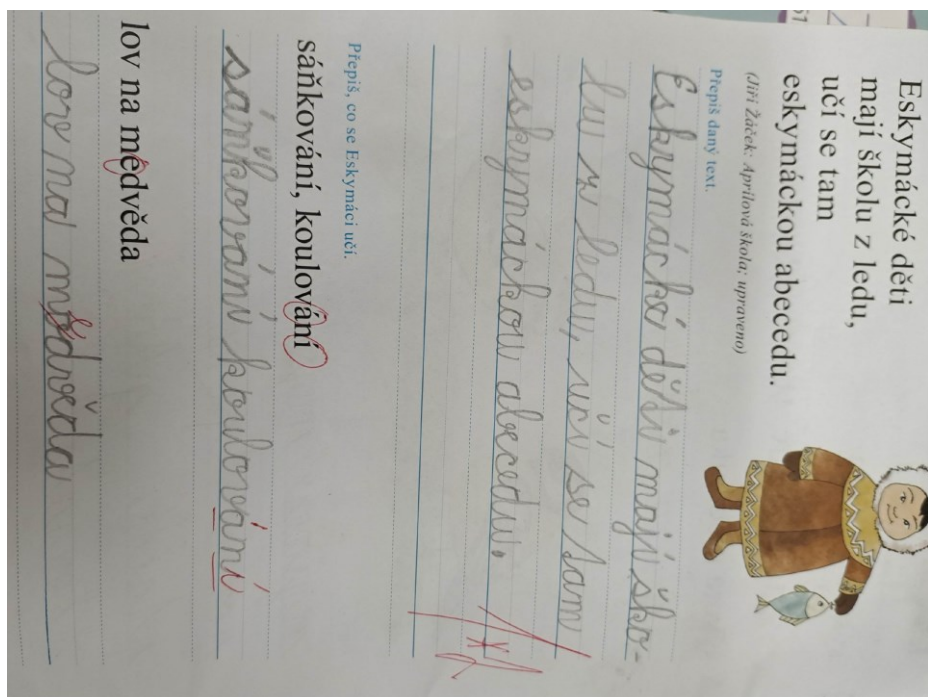 Eskymácké děti
mají školu z ledu,
učí se tam
eskymáckou abecedu.
(Jiří Žáček: Aprílová škola, upraveno)
Přepiš daný text.
Eskymácké děti mají ško-
lu z ledu, učí se tam
eskymáckou abecedu.
Přepiš, co se Eskymáci učí.
sáňkování, koulování
sáňkování koulování
lov na medvěda
lov na medvěda